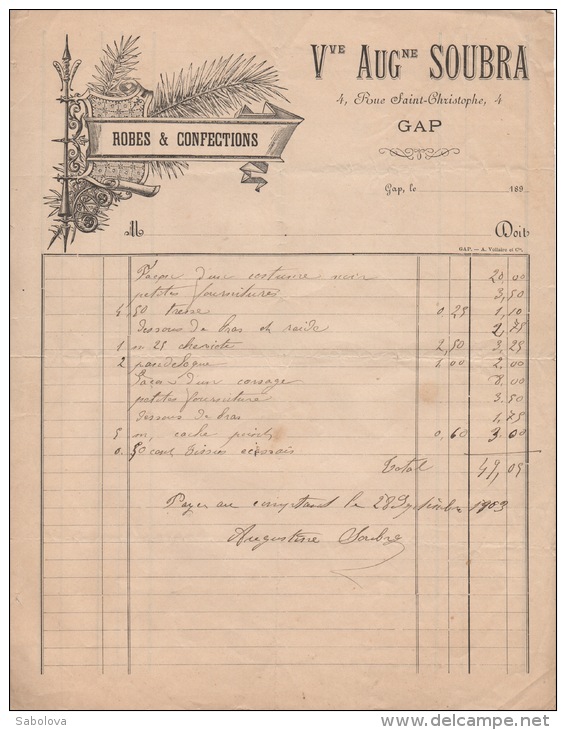 Vve Augne SOUBRA
4, Rue Saint-Christophe, 4
GAP
ROBES & CONFECTIONS
Gap, le 189
M Doit
GAP. — A. Vollaire et Cie.
Façon d'un costume noir 20,00
petites fournitures 3,50
4 50 tresse 0 25 1,10
dessous de bras et 2,75
1 m 25 2,50 3,25
2 1 00 2,00
Façon d'un corsage 8,00
petites fourniture 3.50
dessous de bras 1,75
5 m, cache point 0,60 3,00
0. 50
Total 49,05
Payer au comptant le 28 Septembre 1903
Augustine Soubra
Sabolova
www.delcampe.net